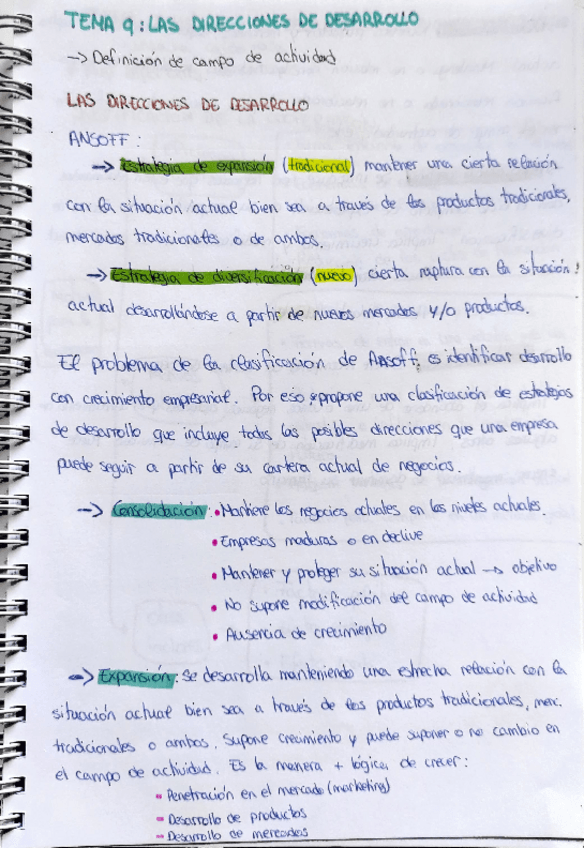 TEMA 9: LAS DIRECCIONES DE DESARROLLO
→ Definición de campo de actividad
LAS DIRECCIONES DE DESARROLLO
ANSOFF:
→ Estrategia de expansión (tradicional) mantener una cierta relación
con la situación actual bien sea a través de los productos tradicionales,
mercados tradicionales o de ambos.
→ Estrategia de diversificación (nuevo) cierta ruptura con la situación
actual desarrollándose a partir de nuevos mercados y/o productos.
El problema de la clasificación de Ansoff, es identificar desarrollo
con crecimiento empresarial. Por eso se propone una clasificación de estrategias
de desarrollo que incluye todas las posibles direcciones que una empresa
puede seguir a partir de su cartera actual de negocios.
→ Consolidación: • Mantiene los negocios actuales en los niveles actuales.
• Empresas maduras o en declive
• Mantener y proteger su situación actual → objetivo
• No supone modificación del campo de actividad
• Ausencia de crecimiento
→ Expansión: se desarrolla manteniendo una estrecha relación con la
situación actual bien sea a través de los productos tradicionales, merc.
tradicionales o ambos. Supone crecimiento y puede suponer o no cambio en
el campo de actividad. Es la manera + lógica de crecer:
- Penetración en el mercado (marketing)
- Desarrollo de productos
- Desarrollo de mercados